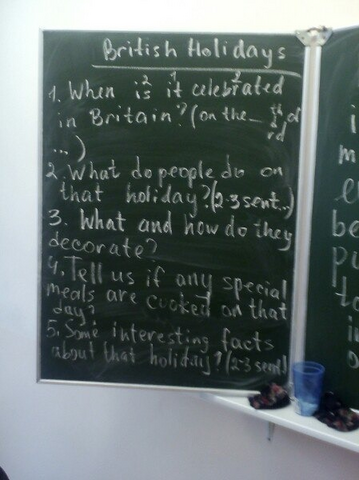 British Holidays
1. When is it celebrated
in Britain? (on the ... th of
rd
...)
2. What do people do on
that holiday? (2-3 sent...)
3. What and how do they
decorate?
4. Tell us if any special
meals are cooked on that
day?
5. Some interesting facts
about that holiday? (2-3 sent)